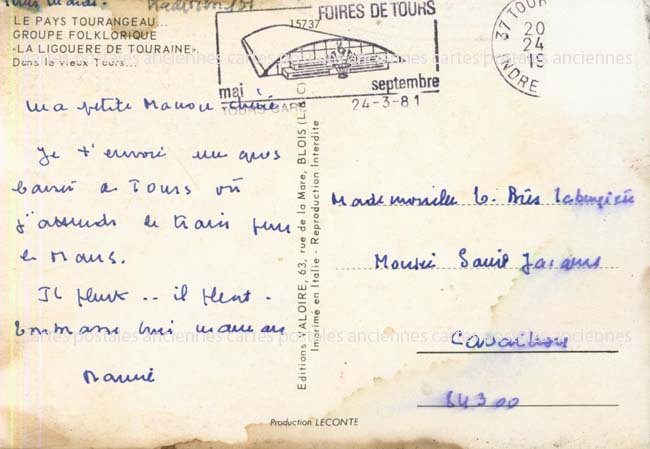 LE PAYS TOURANGEAU...
GROUPE FOLKLORIQUE
«LA LIGOUERE DE TOURAINE»
Dans le vieux Tours...
15737
FOIRES DE TOURS
mai
septembre
TOURS GARE
24-3-81
37 TOURS
20
24
19
INDRE
Ma petite Manou chérie
Je t'envoie un gros
baiser de Tours où
j'attends le train pour
le Mans.
Il pleut .. il pleut.
Embrasse bien maman
Mamie
Editions VALOIRE, 63, rue de la Mare, BLOIS (L. & C)
Imprimé en Italie - Reproduction Interdite
Mademoiselle
Cavaillon
84300
Production LECONTE
cartes postales anciennes cartes postales anciennes cartes postales anciennes